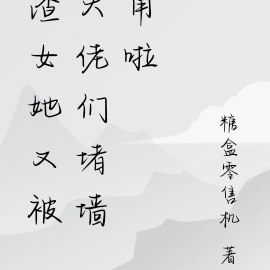 渣女她又被
大佬们堵墙
角啦
糖盒零售机 著